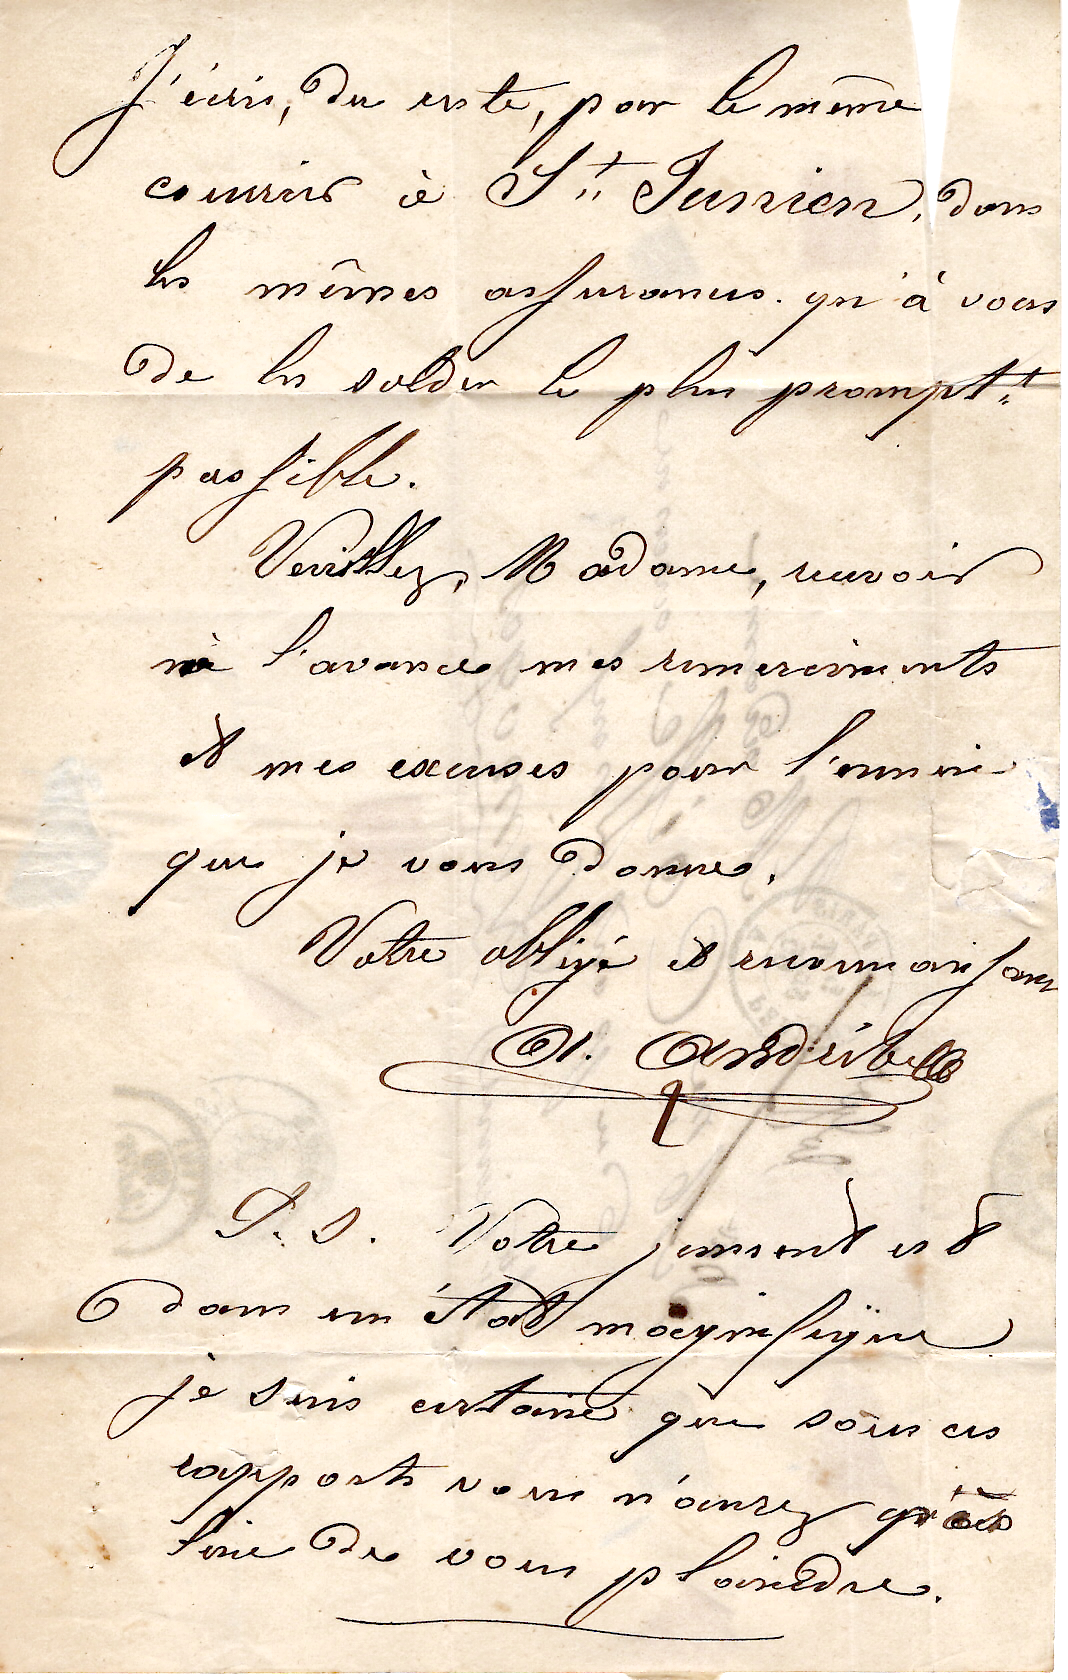 J'écris, du reste, par le même
courrier à St. Junien, dans
les mêmes assurances qu'à vous
de les solder le plus prompt.t
possible.
Veuillez, Madame, recevoir
à l'avance mes remerciments
et mes excuses pour l'ennui
que je vous donne.
Votre obligé et reconnaissant
P. S. Votre jument est
dans un état magnifique
je suis certaine que sous ces
rapports vous n'aurez
lieu de vous plaindre.